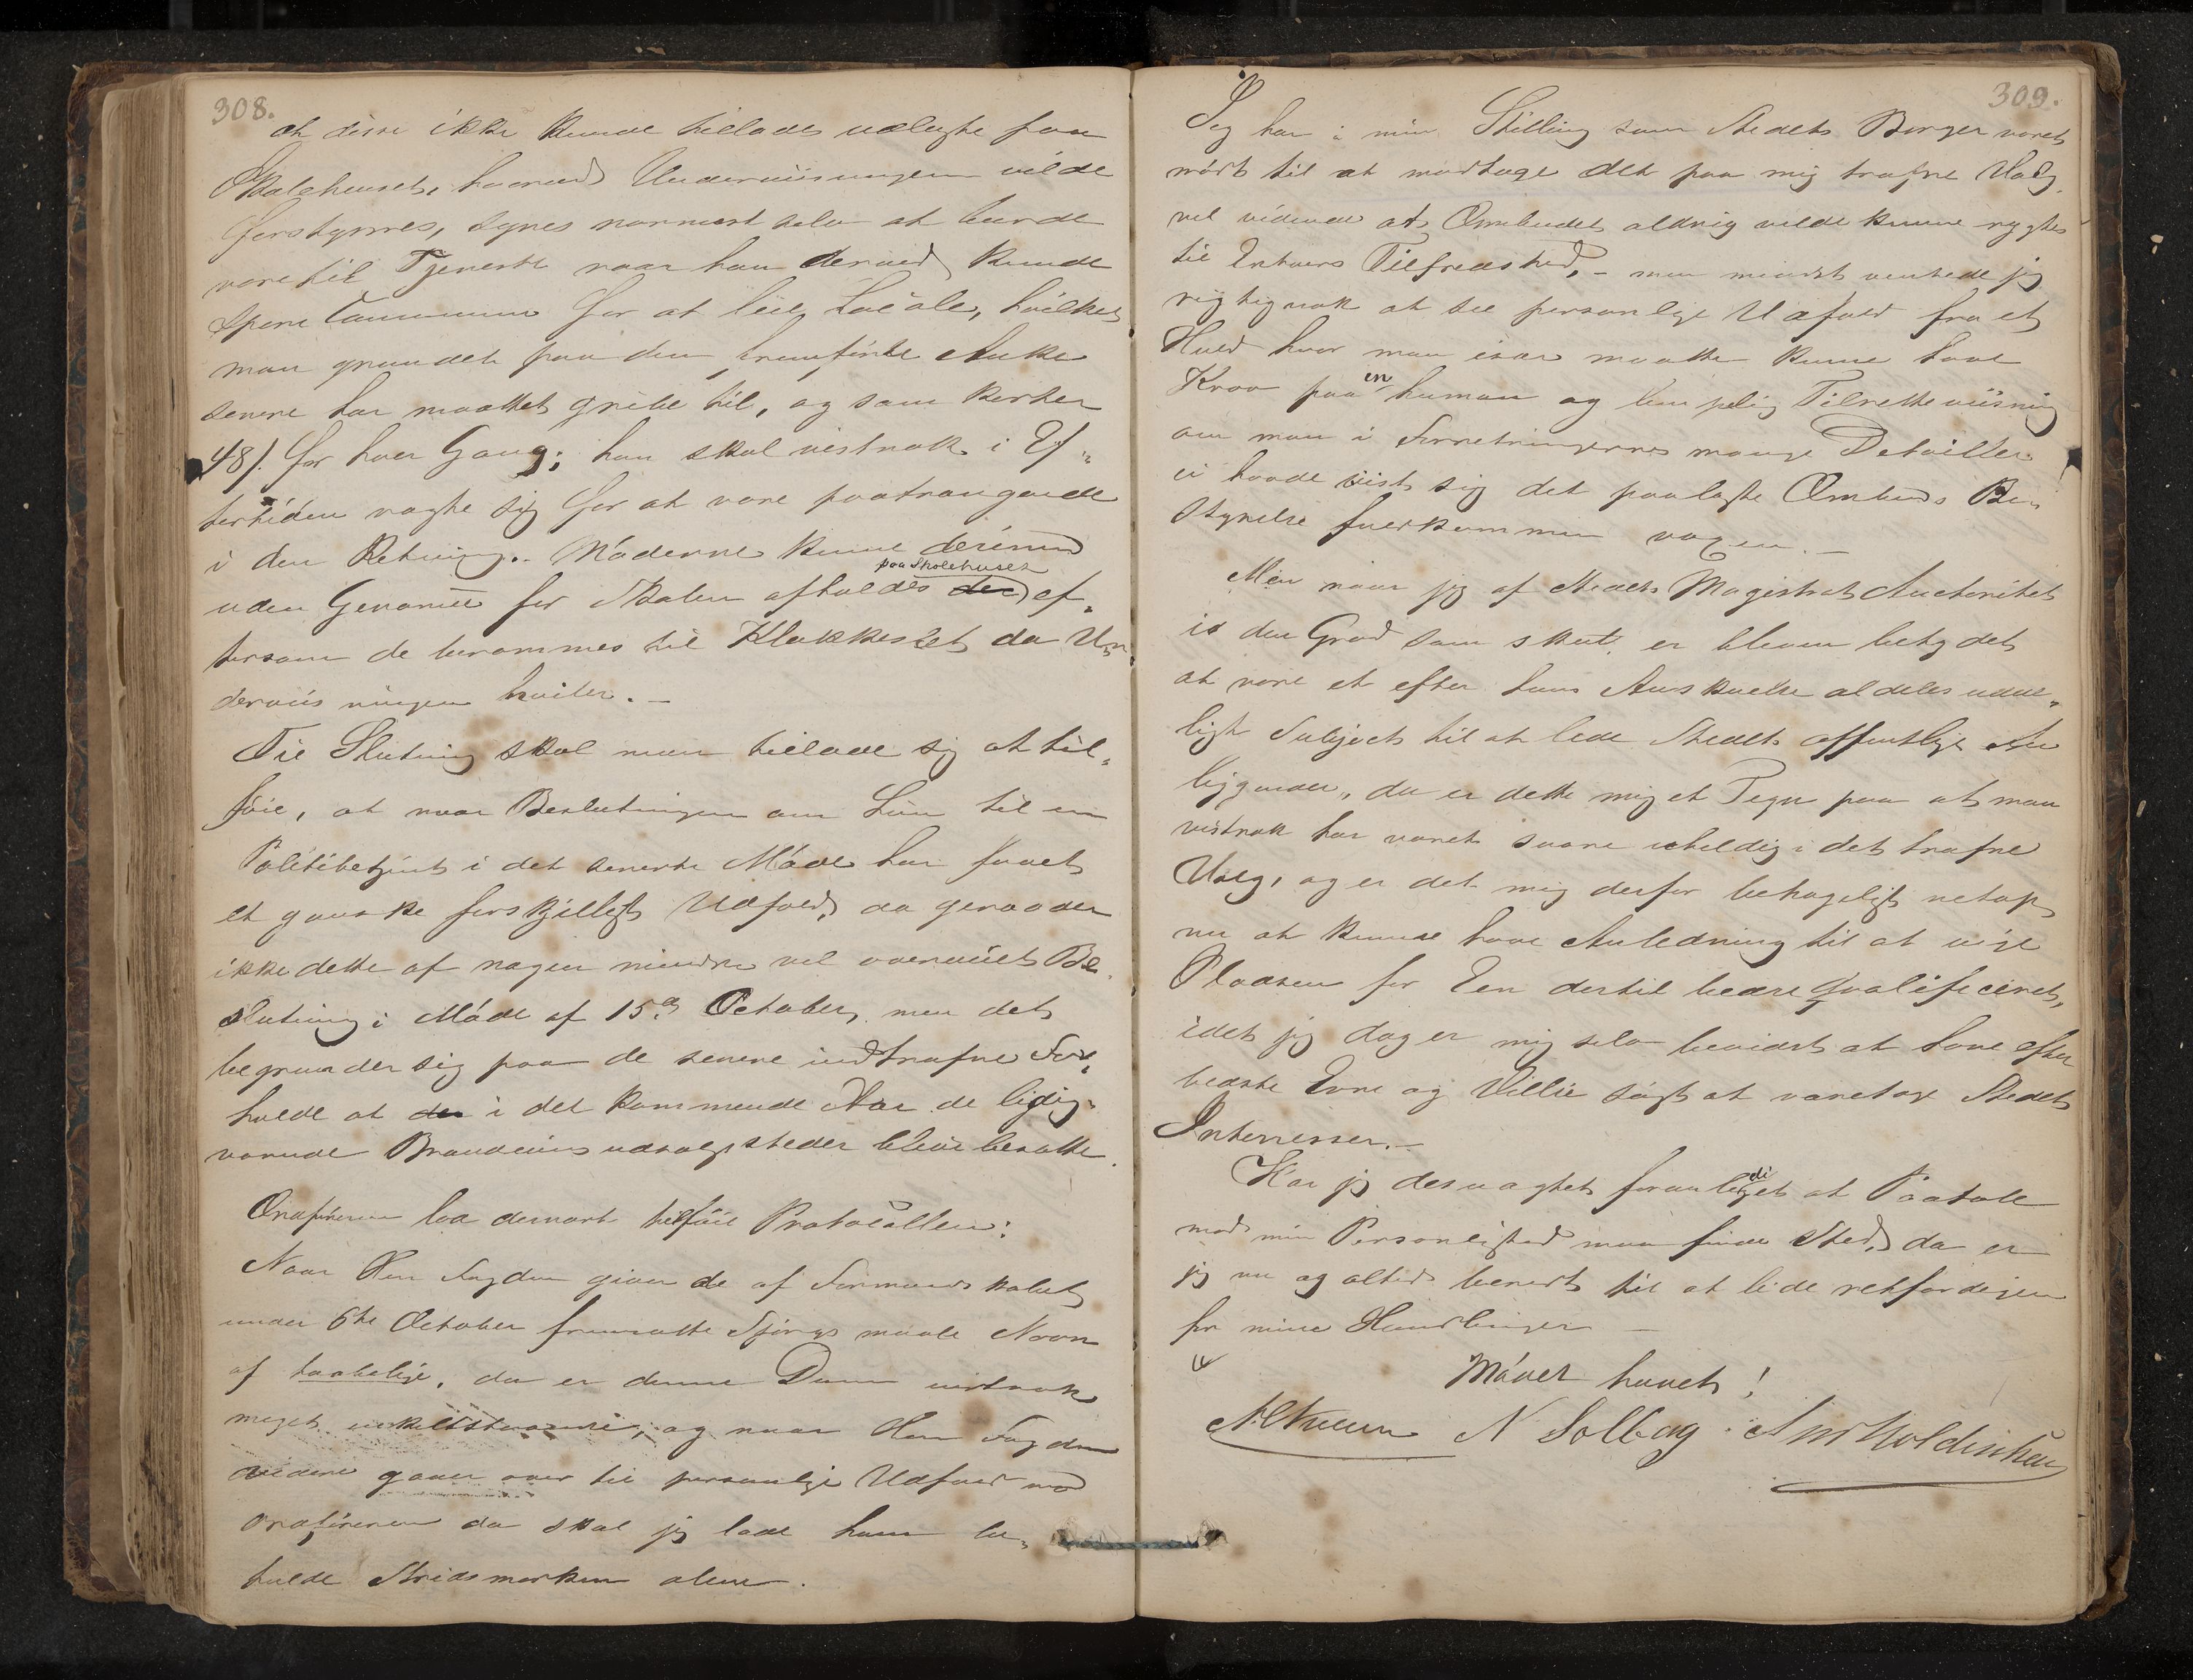 308.
at disse ikke kunde tillades udlagte paa
Skolehuset, hvorved Underviisningen vilde
forstyrres, synes nærmest selv at burde
være til Tjeneste naar han derved kunde
spare Communen for at leie Locale, hvilket
man grundet paa den fremførte Anke
senere har maattet gribe til, og som koster
48/. for hver Gang; han skal vistnok i Ef„
tertiden vogte sig for at være paatrængende
i den Retning. Møderne kunne derimod
uden Genanse for Skolen afholdes paa Skolehuset der ef„
tersom de berammes til Klokkeslet da Un„
derviisningen hviler.–
Til Slutning skal man tillade sig at til„
føie, at naar Beslutningen om Løn til en
Politibetjent i det seneste Møde har faaet
et ganske forskjelligt Udfald, da
ikke dette af nogen mindre vel overveiet Be„
slutning i Møde af 15de October, men det
begrunder sig paa de senere indtrufne For„
holde at der i det kommende Aar de ledig„
værende Brændeviinsudsalgssteder bleve besatte.
Ordføreren lod dernæst tilføie Protocollen:
Naar Herr Fogden giver de af Formandskabet
under 6te October fremsatte Spørgsmaale Navn
af taabelige, da er denne Dom vistnok
meget enkeltstaaende, og naar Herr Fogden
videre gaaer over til personlige Udfald mod
Ordføreren da skal jeg lade ham be„
holde Stridsmarken alene.
309.
Jeg har i min Stilling som Stedets Borger været
nødt til at modtage det paa mig trufne Valg,
vel vidende at Ombudet aldrig vilde kunne røgtes
til Enhvers Tilfredshed,– men mindst ventede jeg
rigtignok at see personlige Udfald fra et
Hold hvor man især maatte kunne have
Krav paa en human og lempelig Tilretteviisning
om man i Forretningernes mange Detailler
ei havde viist sig det paalagte Ombuds Be„
styrelse fuldkommen voxen.–
Men naar jeg af Stedets Magistrats Auctoritet
i den Grad som skeet, er bleven betydet
at være et efter hans Anskuelse aldeles udue„
ligt Subject til at lede Stedets offentlige An
liggender, da er dette mig et Tegn paa at man
vistnok har været saare uheldig i det trufne
Valg, og er det mig derfor behageligt netop
nu at kunne have Anledning til at vige
Pladsen for Een dertil bedre Qvalificeret,
idet jeg dog er mig selv bevidst at have efter
bedste Evne og Villie søgt at varetage Stedets
Interesser.–
Har jeg desuagtet foranlediget at Paatale
mod min Personlighed maa finde Sted, da er
jeg nu og altid beredt til at lide retfærdigen
for mine Handlinger –
Mødet hævet!
N Solberg.